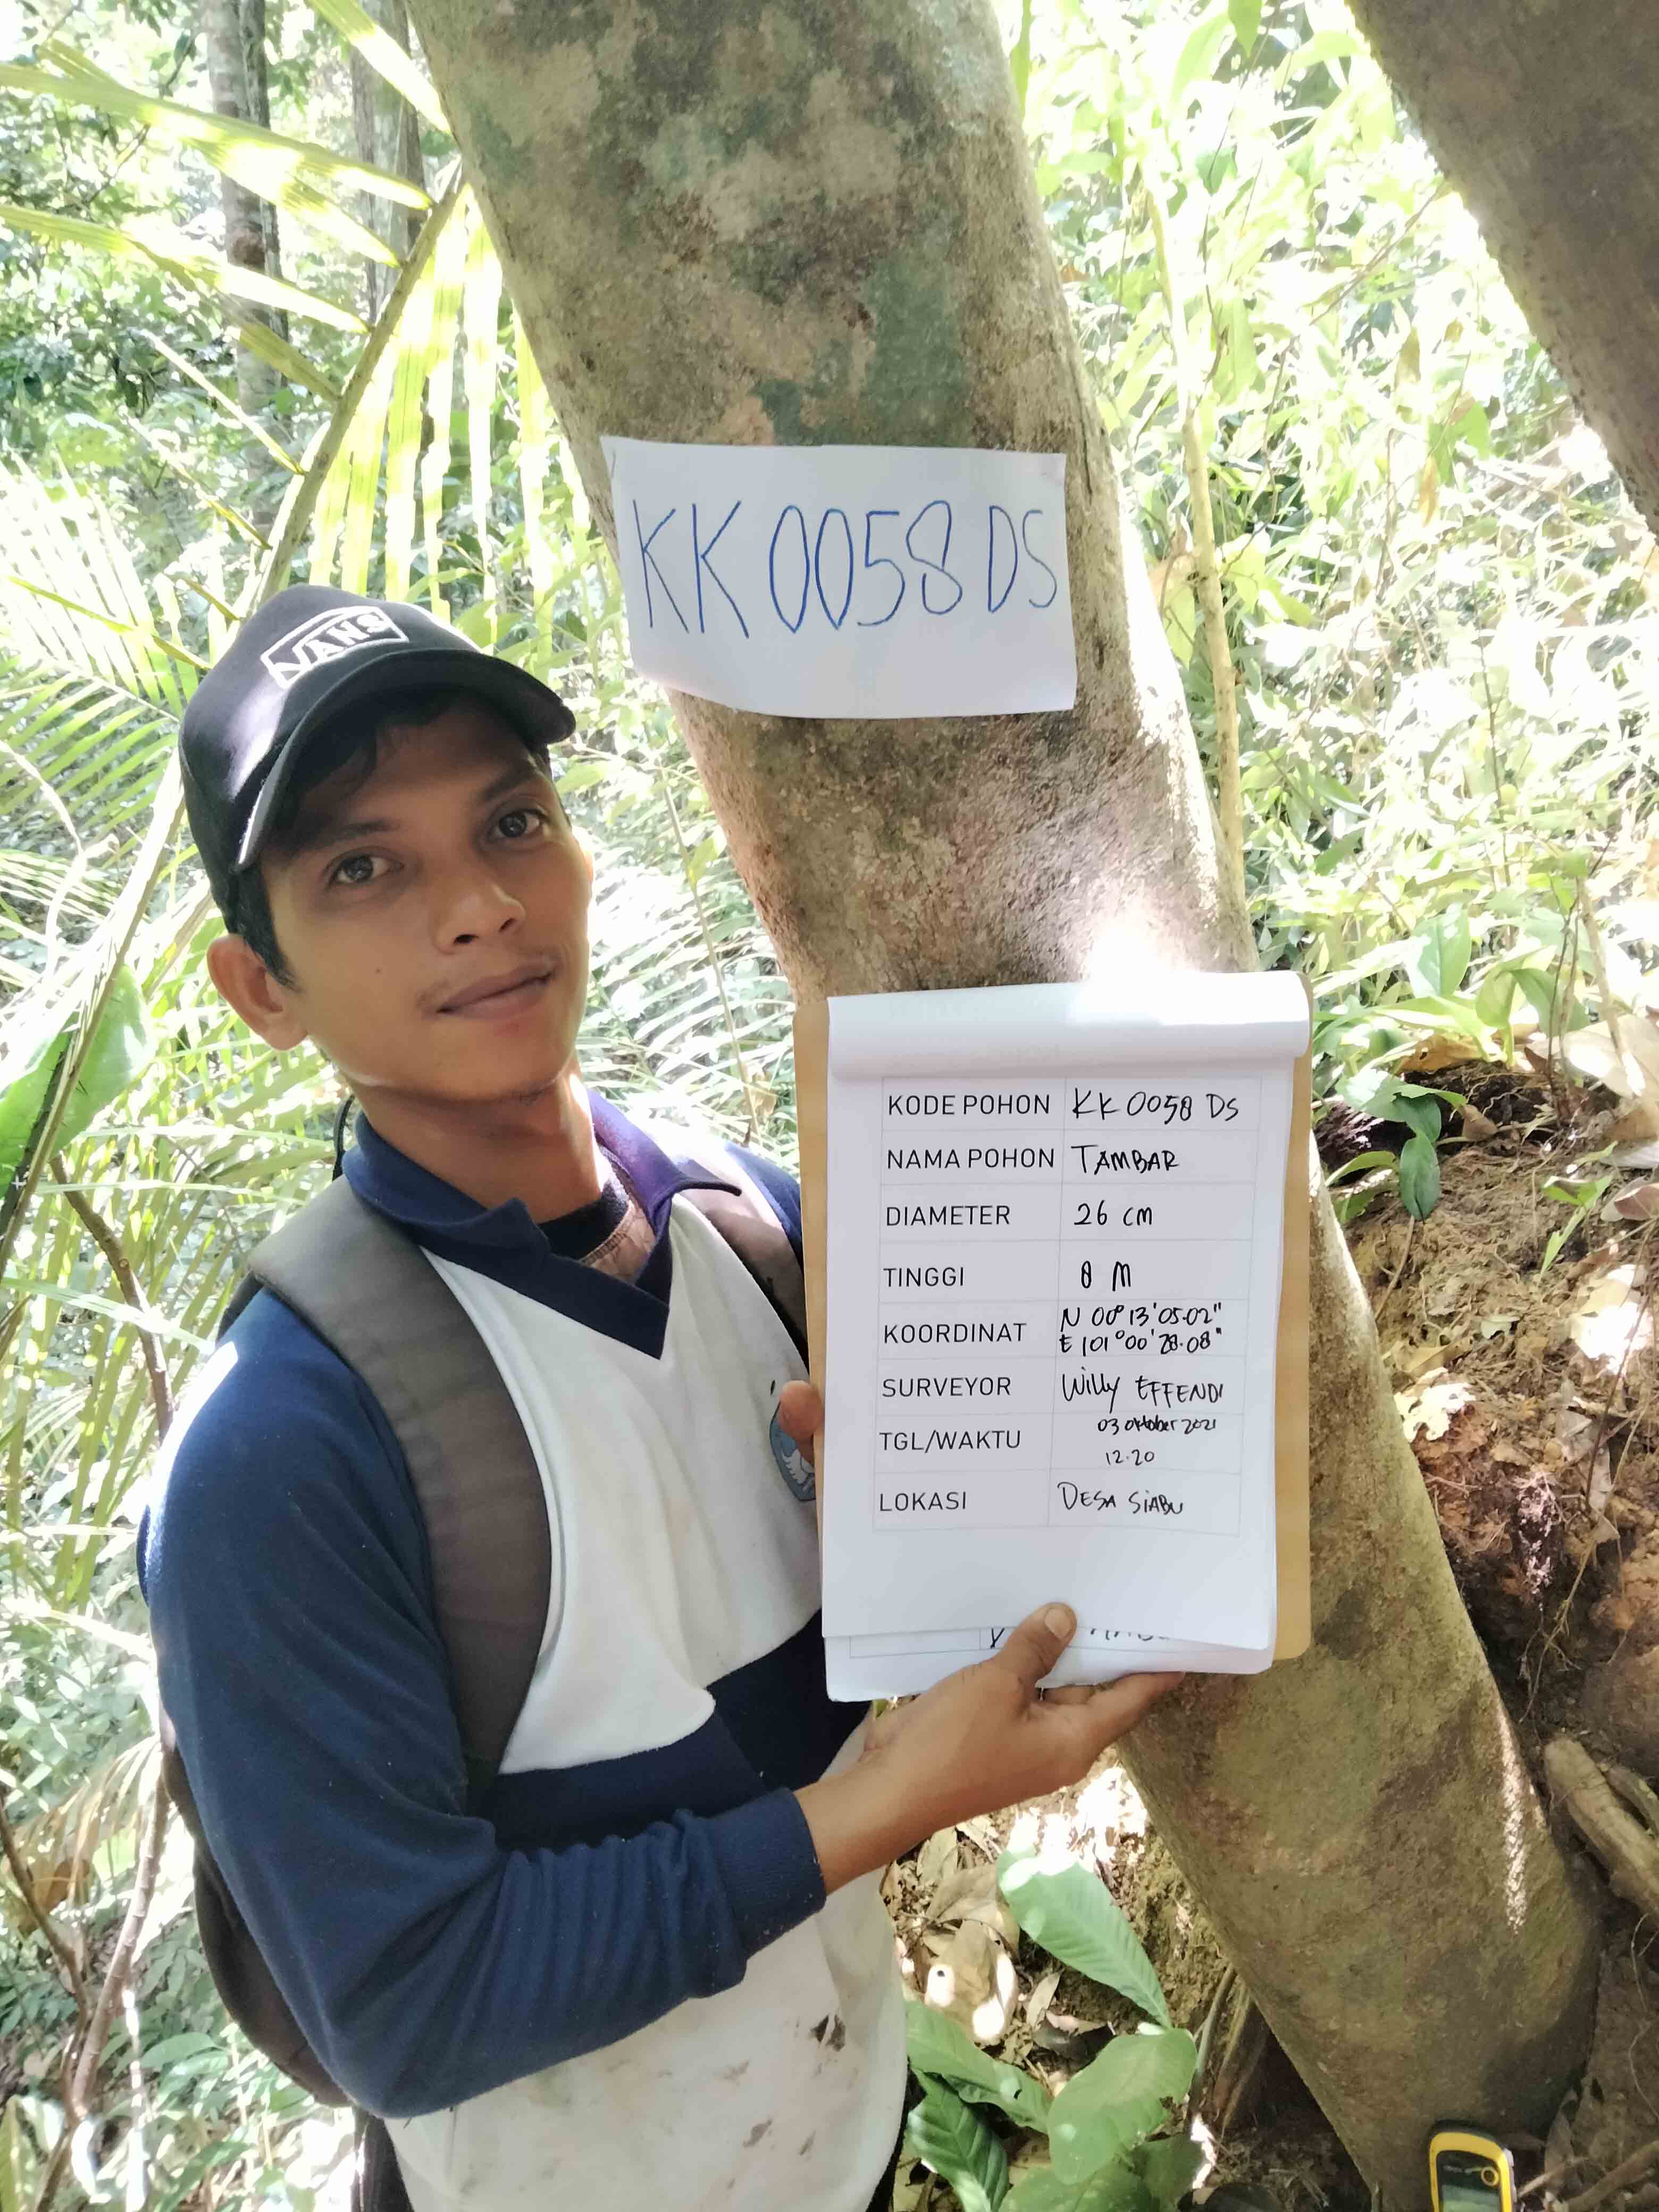 KK 0058 DS
VANS
KODE POHON KK 0058 DS
NAMA POHON TAMBAR
DIAMETER 26 cm
TINGGI 8 M
KOORDINAT N 00° 13' 05.02"
E 101° 00' 28.08"
SURVEYOR Willy EFFENDI
TGL/WAKTU 03 oktober 2021
12.20
LOKASI DESA SIABU